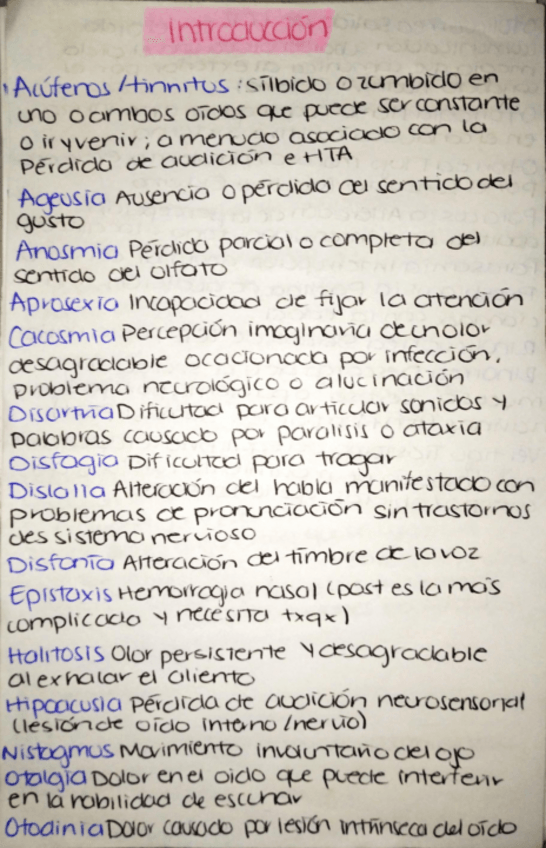 Introducción
Acúfenos/tinnitus: silbido o zumbido en
uno o ambos oídos que puede ser constante
o ir y venir; a menudo asociado con la
Pérdida de audición e HTA
Ageusia Ausencia o pérdida del sentido del
gusto
Anosmia Pérdida parcial o completa del
sentido del olfato
Aprosexia Incapacidad de fijar la atención
Cacosmia Percepción imaginaria de un olor
desagradable ocacionada por infección,
problema neurológico o alucinación
Disartria Dificultad para articular sonidos y
palabras causado por paralisis o ataxia
Disfagia Dificultad para tragar
Dislalia Alteración del habla manifestado con
problemas de pronunciación sin trastornos
des sistema nervioso
Disfonía Alteración del timbre de la voz
Epistaxis Hemorragia nasal (post es la más
complicada y necesita txqx)
Halitosis Olor persistente y desagradable
al exhalar el aliento
Hipoacusia Pérdida de audición neurosensorial
(lesión de oído interno/nervio)
Nistagmus Movimiento involuntario del ojo
Otalgia Dolor en el oido que puede interferir
en la habilidad de escuchar
Otodinia Dolor causado por lesión intrínseca del oído